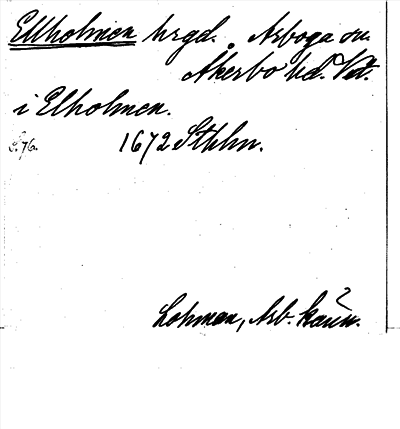 Ellholmen hrgd. Arboga sn.
Åkerbo hd. Vstm.
i Elholmen.
S. 76. 1672 Sthlm.
Lohman, Arb. känn.